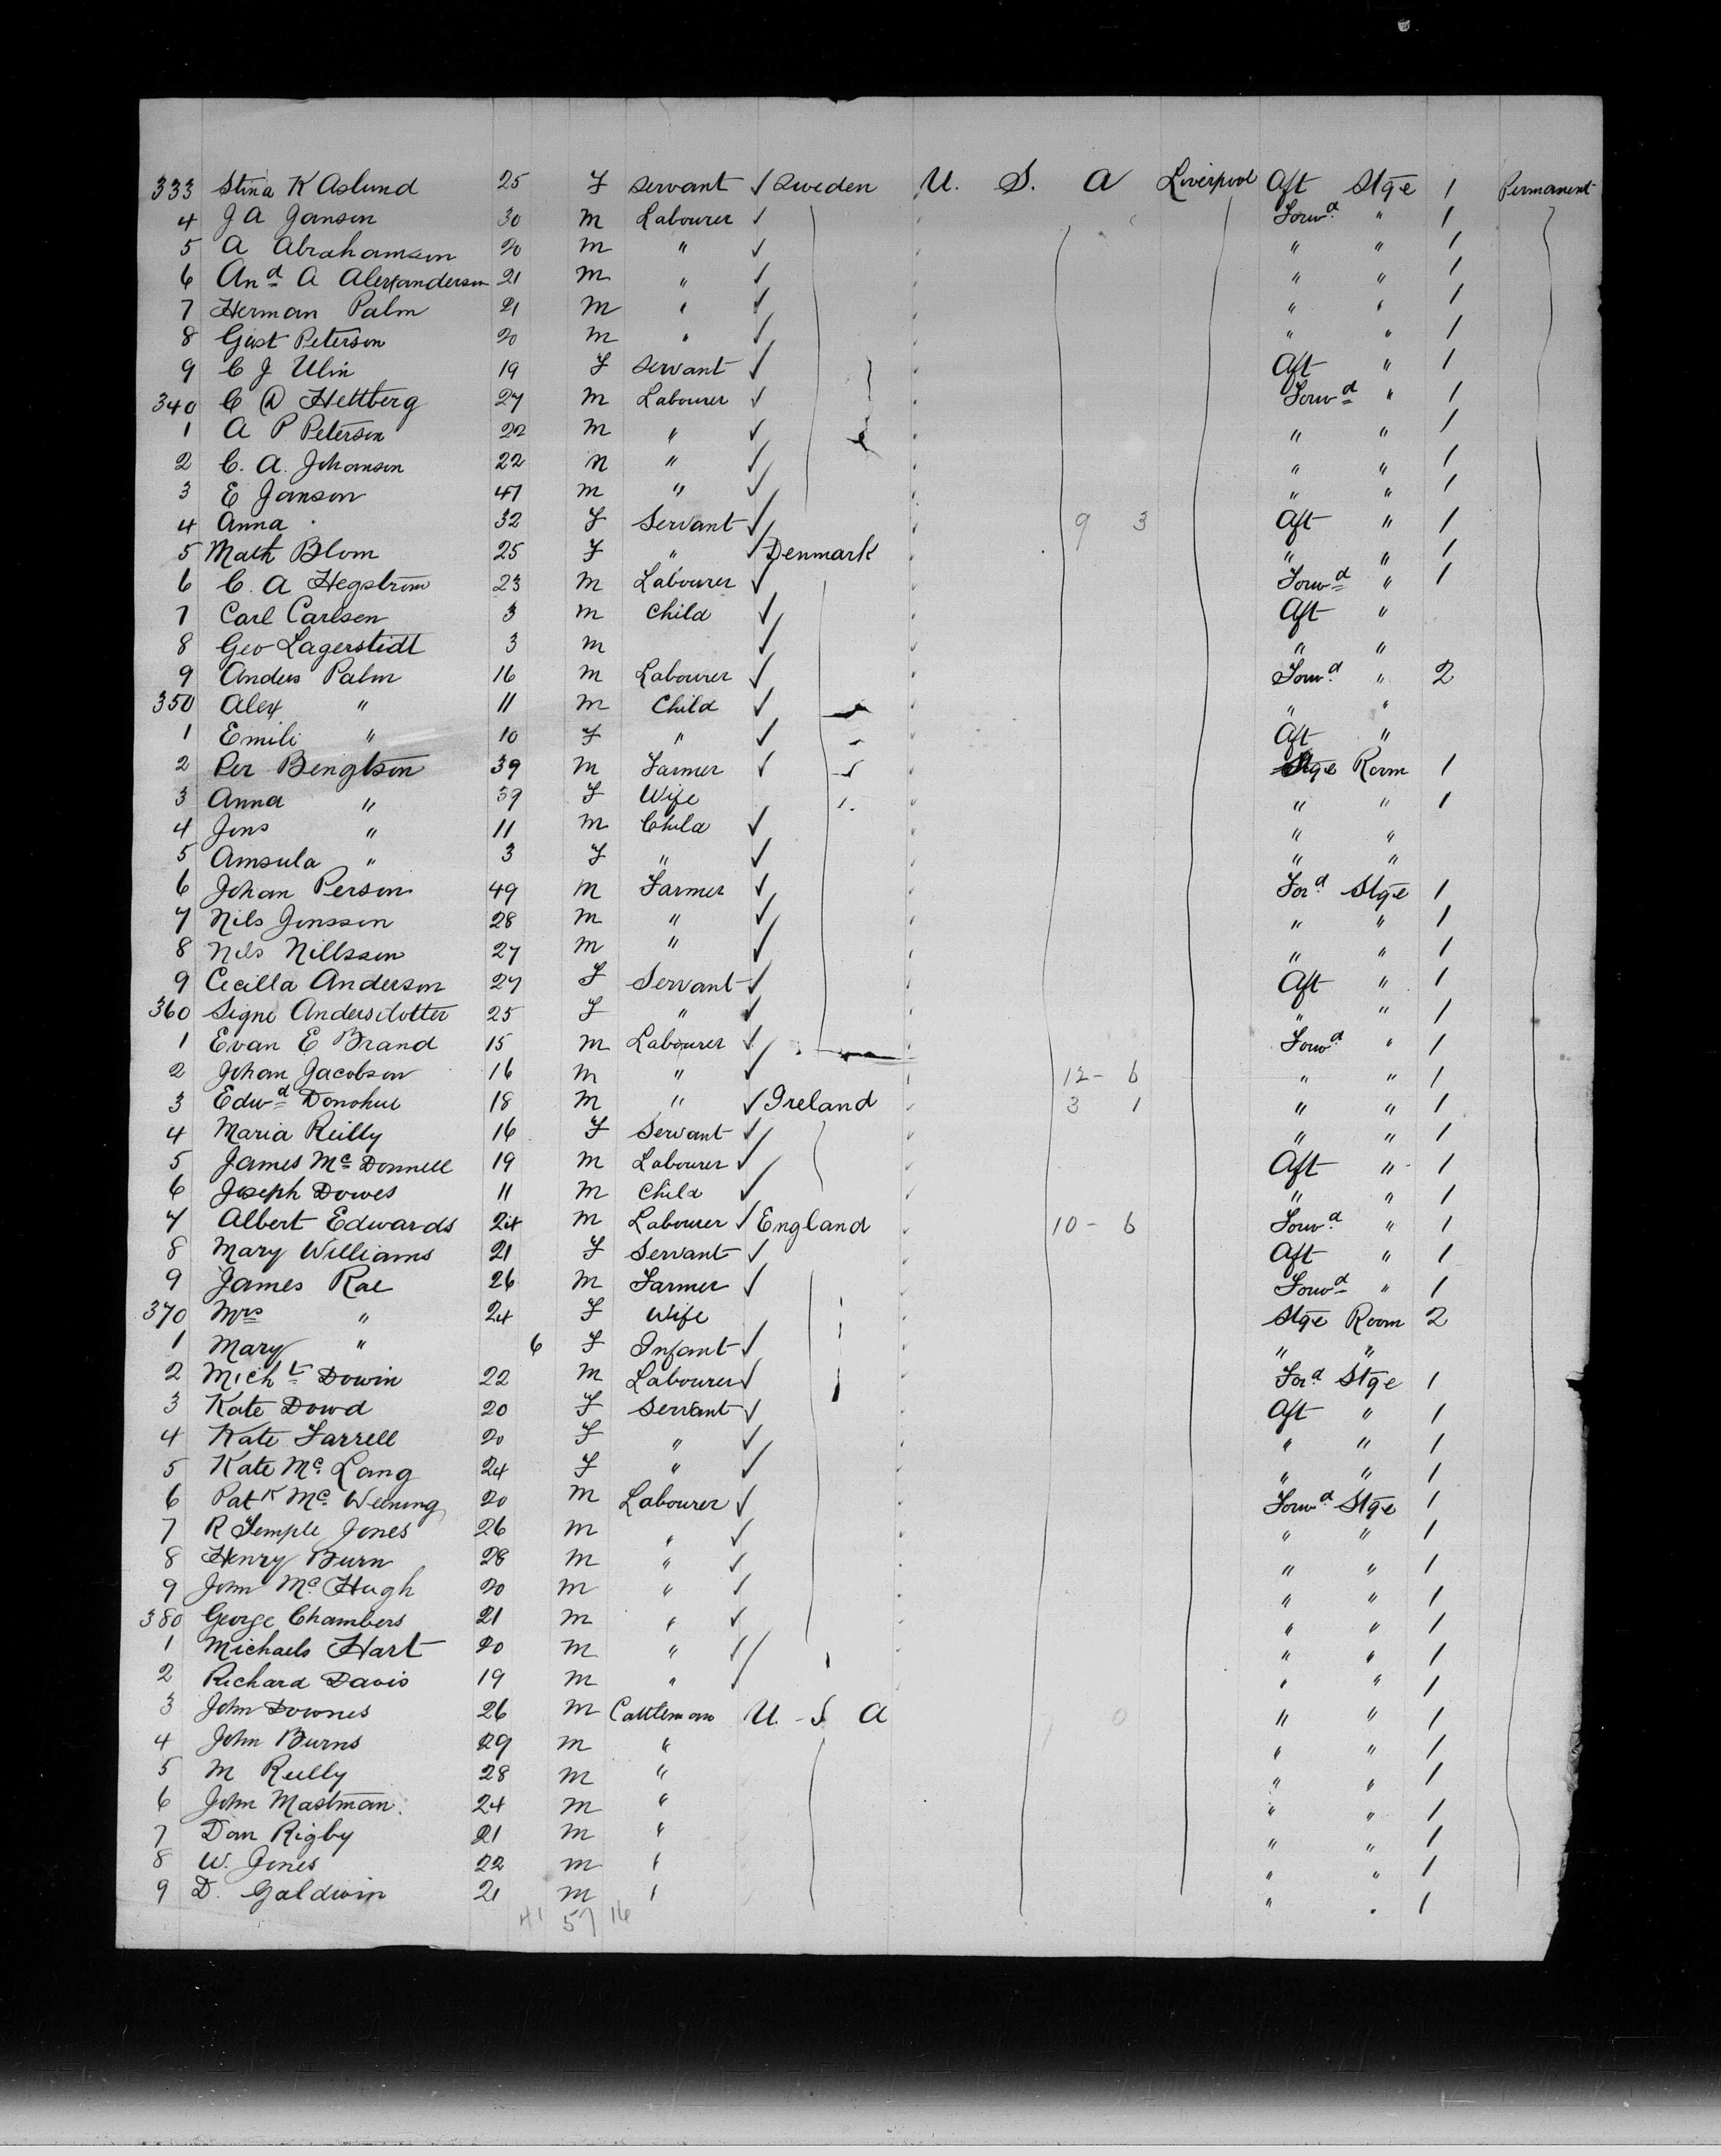 333 Stina K Aslund 25 F Servant ✓ Sweden U. S. A Liverpool Aft Stge 1 Permanent
4 J A Janson 30 m Labourer ✓ Forwd " 1
5 A Abrahamson 20 m " ✓ " " 1
6 And A Alexanderson 21 m " ✓ " " 1
7 Herman Palm 21 m " ✓ " " 1
8 Gust Peterson 20 m " ✓ " " 1
9 C J Ulin 19 F Servant ✓ Aft " 1
340 C A Hettberg 27 m Labourer ✓ Forwd " 1
1 A P Peterson 22 m " ✓ " " 1
2 C. A. Johanson 22 m " ✓ " " 1
3 E Janson 47 m " ✓ " " 1
4 Anna 32 F Servant ✓ 9 3 Aft " 1
5 Math Blom 25 F " ✓ Denmark " " 1
6 C. A Hegstrom 23 m Labourer ✓ Forwd " 1
7 Carl Carlsen 3 m Child ✓ Aft "
8 Geo Lagerstidt 3 m ✓ " "
9 Anders Palm 16 m Labourer ✓ Forwd " 2
350 Alex " 11 m Child ✓ " "
1 Emili " 10 F " ✓ Aft "
2 Per Bengtson 39 m Farmer ✓ Stge Room 1
3 Anna " 39 F Wife " " 1
4 Jons " 11 m Child ✓ " "
5 Amsula " 3 F " ✓ " "
6 Johan Person 49 m Farmer ✓ Ford Stge 1
7 Nils Jonsson 28 m " ✓ " " 1
8 Nils Nillsson 27 m " ✓ " " 1
9 Cecilla Anderson 27 F Servant ✓ Aft " 1
360 Signe Andersdotter 25 F " ✓ " " 1
1 Evan E Brand 15 m Labourer ✓ Forwd " 1
2 Johan Jacobson 16 m " ✓ 12 - 6 " " 1
3 Edwd Donohue 18 m " ✓ Ireland 3 1 " " 1
4 Maria Reilly 16 F Servant ✓ " " 1
5 James Mc Donnell 19 m Labourer ✓ Aft " 1
6 Joseph Dowes 11 m Child ✓ " " 1
7 Albert Edwards 24 m Labourer ✓ England 10 - 6 Forwd " 1
8 Mary Williams 21 F Servant ✓ Aft " 1
9 James Rae 26 m Farmer ✓ Forwd " 1
370 Mrs " 24 F Wife Stge Room 2
1 Mary " 6 F Infant ✓ " "
2 Michl Dowin 22 m Labourer ✓ Ford Stge 1
3 Kate Dowd 20 F Servant ✓ Aft " 1
4 Kate Farrell 20 F " ✓ " " 1
5 Kate Mc Lang 24 F " ✓ " " 1
6 Patk Mc Weening 20 m Labourer ✓ Forwd Stge 1
7 R Temple Jones 26 m " ✓ " " 1
8 Henry Burn 28 m " ✓ " " 1
9 John Mc Hugh 20 m " ✓ " " 1
380 George Chambers 21 m " ✓ " " 1
1 Michaels Hart 20 m " ✓ " " 1
2 Richard Davis 19 m " ✓ " " 1
3 John Downes 26 m Cattleman U - S A 0 " " 1
4 John Burns 29 m " " " 1
5 M Reilly 28 m " " " 1
6 John Mastman. 24 m " " " 1
7 Dan Rigby 21 m " " " 1
8 W. Jones 22 m " " " 1
9 D. Galdwin 21 m " " " 1
41 57 16